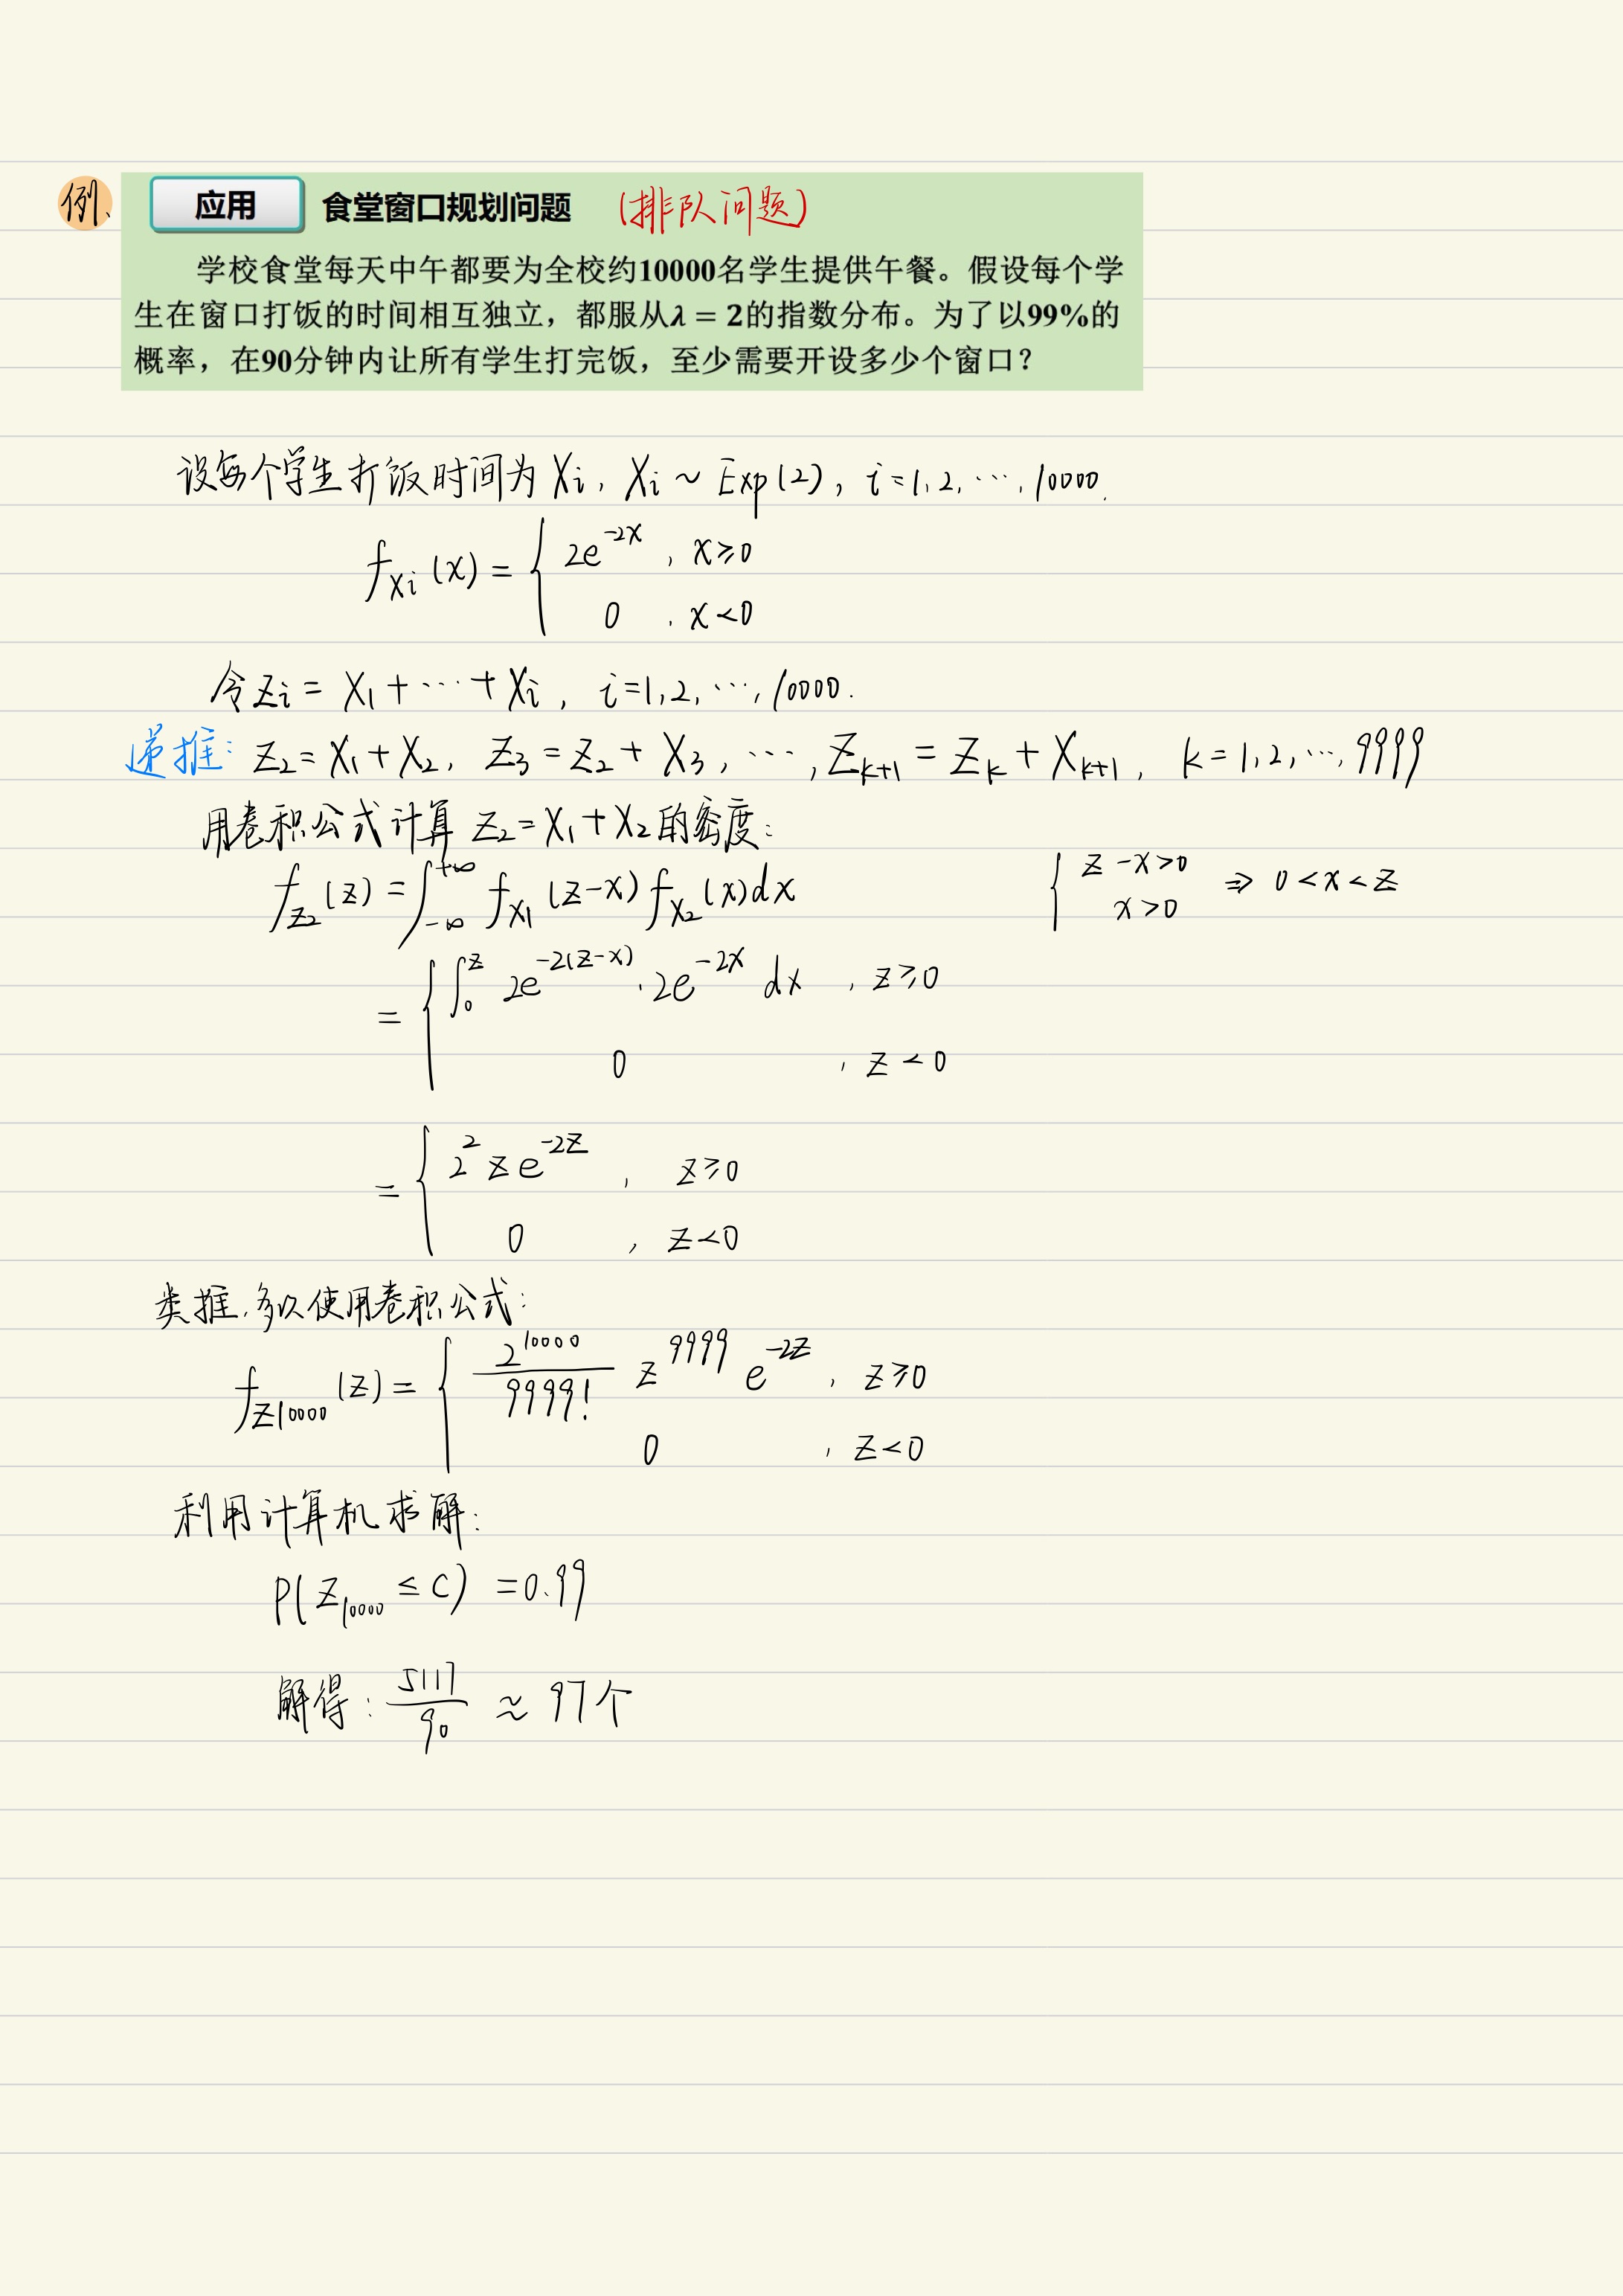 例、 应用 食堂窗口规划问题 (排队问题)
学校食堂每天中午都要为全校约10000名学生提供午餐。假设每个学
生在窗口打饭的时间相互独立，都服从λ = 2的指数分布。为了以99%的
概率，在90分钟内让所有学生打完饭，至少需要开设多少个窗口？
设每个学生打饭时间为 Xi, Xi ~ Exp(2), i=1,2,…,10000.
f_{Xi}(x) = { 2e^{-2x} , x≥0
0 , x<0
令 Zi = X₁+…+Xi, i=1,2,…,10000.
递推: Z₂=X₁+X₂, Z₃=Z₂+X₃, …, Z_{k+1}=Z_k+X_{k+1}, k=1,2,…,9999
用卷积公式计算 Z₂=X₁+X₂ 的密度:
f_{Z₂}(z) = ∫_{-∞}^{+∞} f_{X₁}(z-x) f_{X₂}(x)dx { z-x>0
x>0 ⇒ 0<x<z
= { ∫_0^z 2e^{-2(z-x)}·2e^{-2x} dx , z≥0
0 , z<0
= { 2² z e^{-2z} , z≥0
0 , z<0
类推,多次使用卷积公式:
f_{Z10000}(z) = { \frac{2^{10000}}{9999!} z^{9999} e^{-2z} , z≥0
0 , z<0
利用计算机求解:
P(Z_{10000} ≤ C) = 0.99
解得: \frac{5117}{90} ≈ 97个